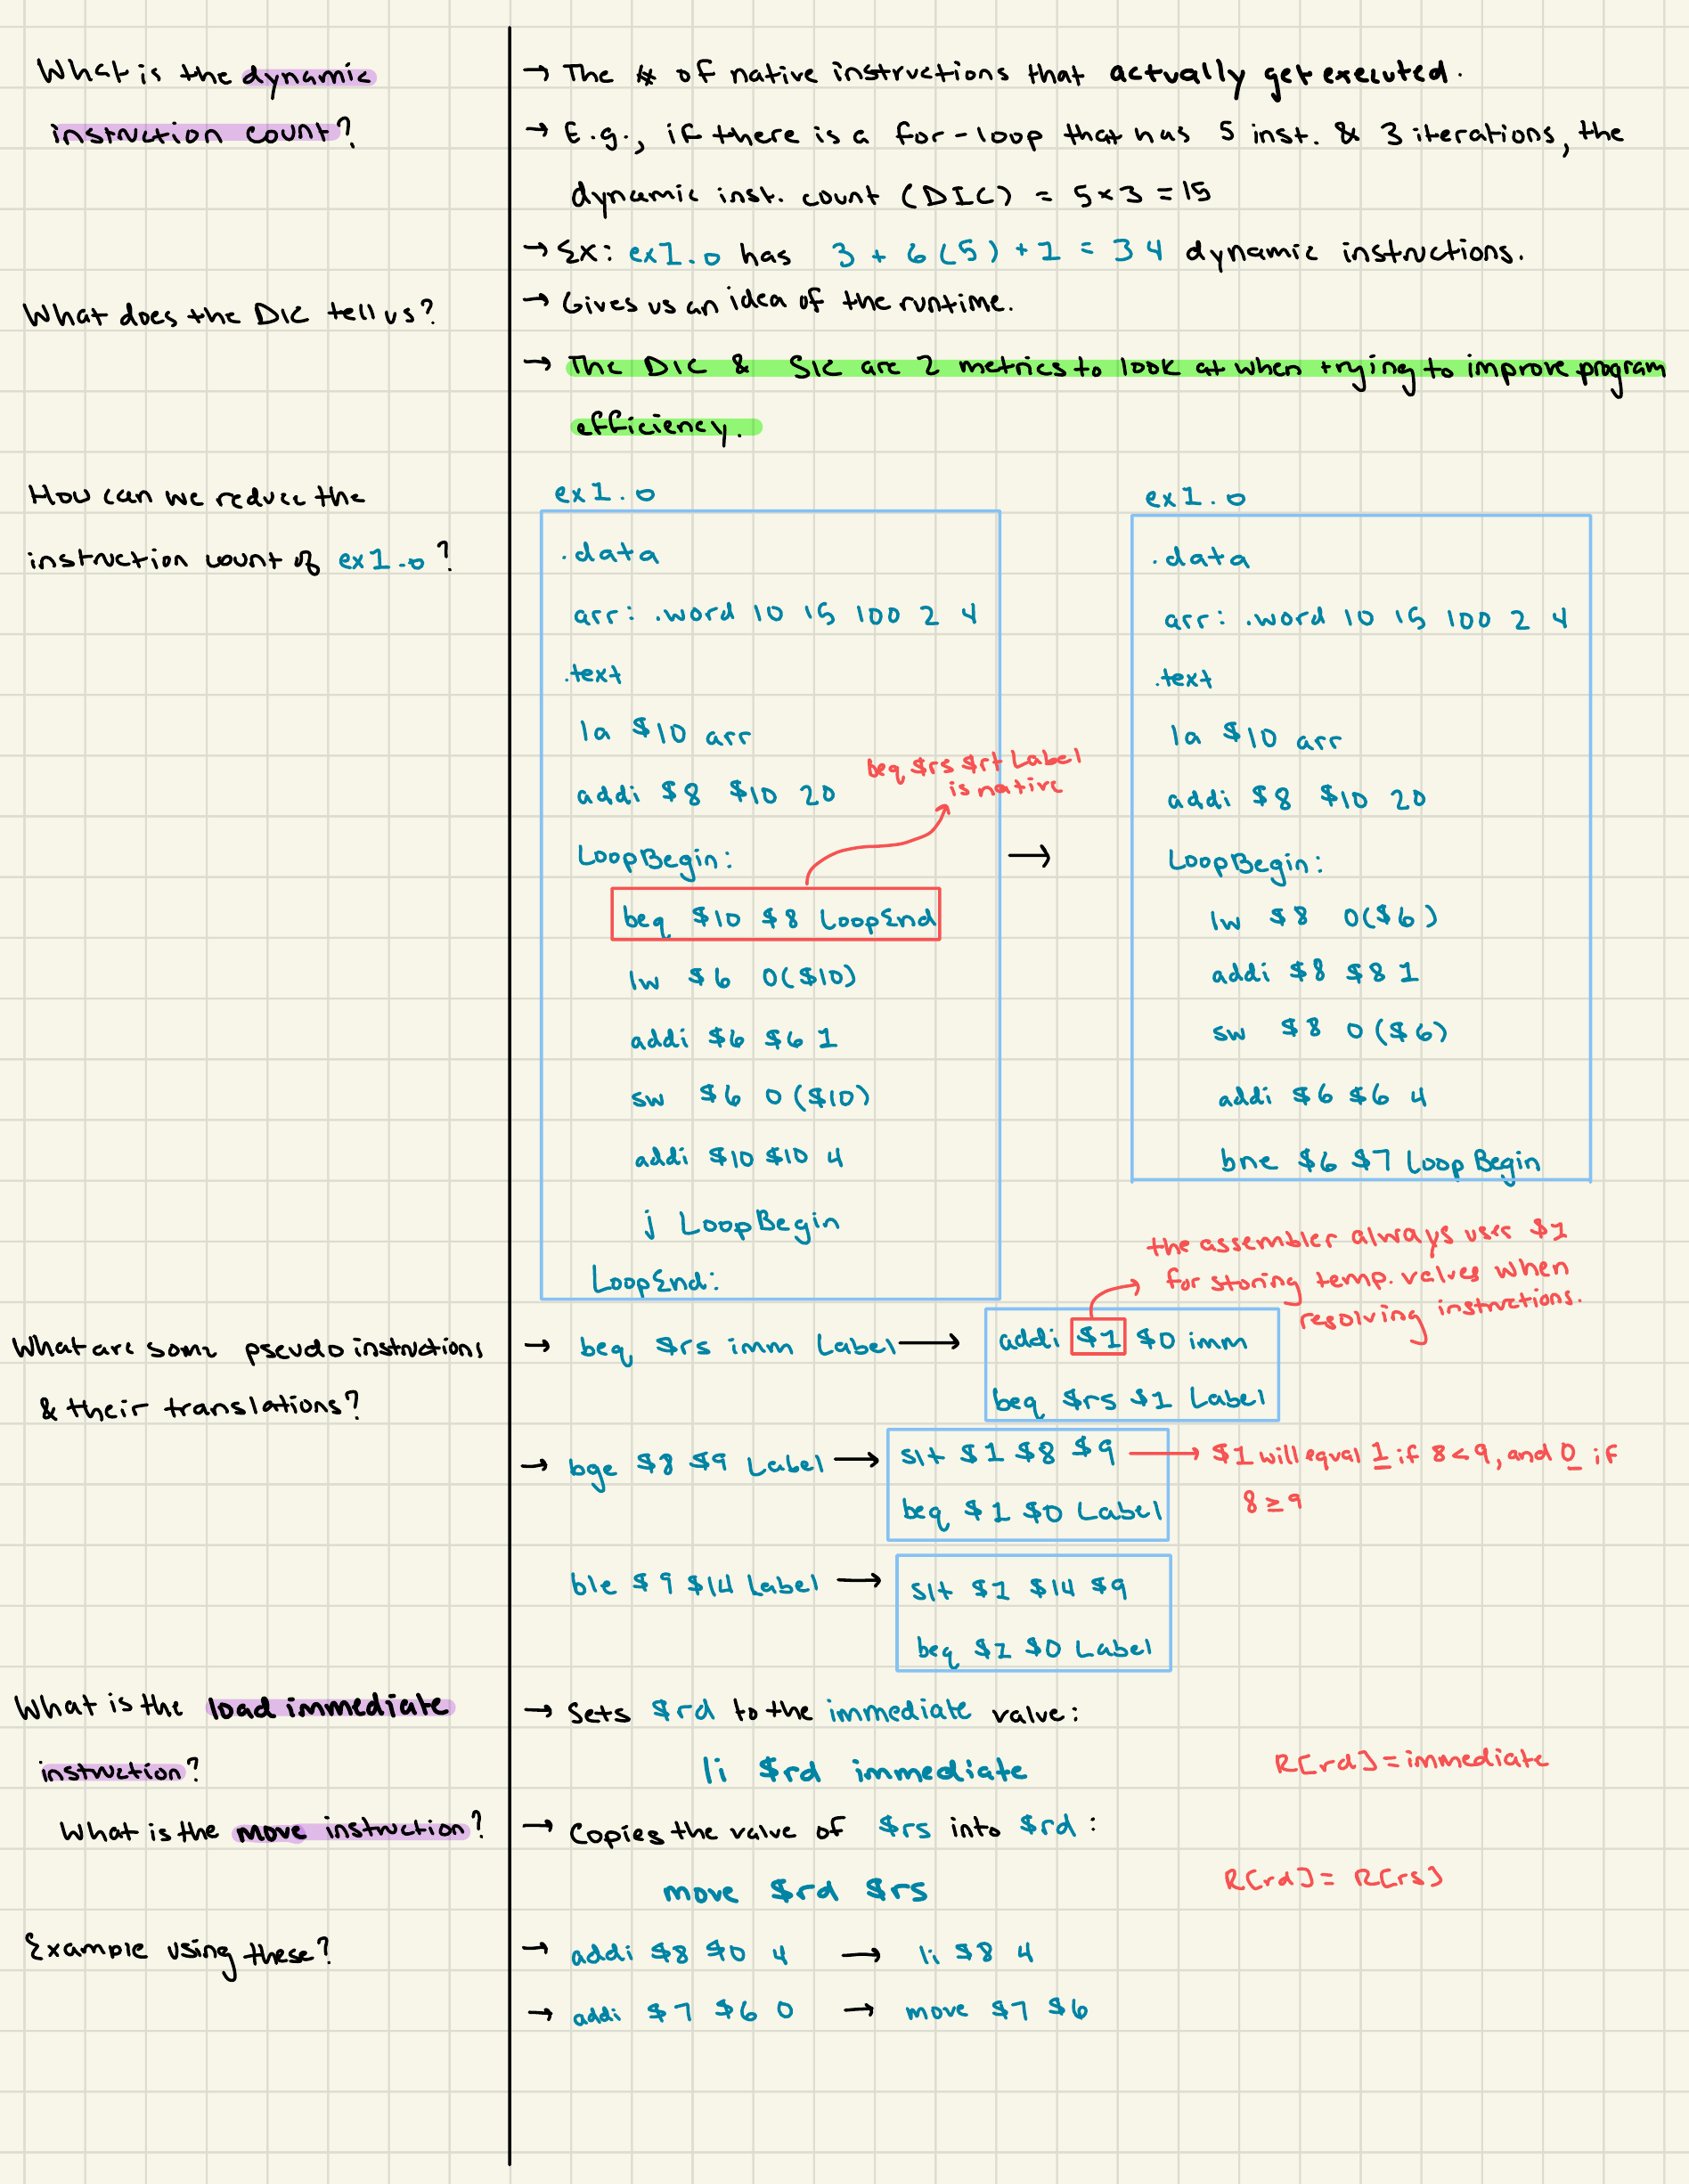 What is the dynamic
instruction count?
→ The # of native instructions that actually get executed.
→ E.g., if there is a for-loop that has 5 inst. & 3 iterations, the
dynamic inst. count (DIC) = 5×3 = 15
→ Ex: ex1.o has 3 + 6(5) + 1 = 34 dynamic instructions.
What does the DIC tell us?
→ Gives us an idea of the runtime.
→ The DIC & SIC are 2 metrics to look at when trying to improve program
efficiency.
How can we reduce the
instruction count of ex1.o?
ex1.o
.data
arr: .word 10 15 100 2 4
.text
la $10 arr
addi $8 $10 20
LoopBegin:
beq $10 $8 LoopEnd
lw $6 0($10)
addi $6 $6 1
sw $6 0($10)
addi $10 $10 4
j LoopBegin
LoopEnd:
beq $rs $rt Label
is native
→
ex1.o
.data
arr: .word 10 15 100 2 4
.text
la $10 arr
addi $8 $10 20
LoopBegin:
lw $8 0($6)
addi $8 $8 1
sw $8 0($6)
addi $6 $6 4
bne $6 $7 LoopBegin
What are some pseudo instructions
& their translations?
→ beq $rs imm Label → addi $1 $0 imm
beq $rs $1 Label
the assembler always uses $1
for storing temp. values when
resolving instructions.
→ bge $8 $9 Label → slt $1 $8 $9 → $1 will equal 1 if 8 < 9, and 0 if
beq $1 $0 Label
8 ≥ 9
ble $9 $14 Label → slt $1 $14 $9
beq $1 $0 Label
What is the load immediate
instruction?
→ Sets $rd to the immediate value:
li $rd immediate
R[rd] = immediate
What is the move instruction?
→ Copies the value of $rs into $rd:
move $rd $rs
R[rd] = R[rs]
Example using these?
→ addi $8 $0 4 → li $8 4
→ addi $7 $6 0 → move $7 $6